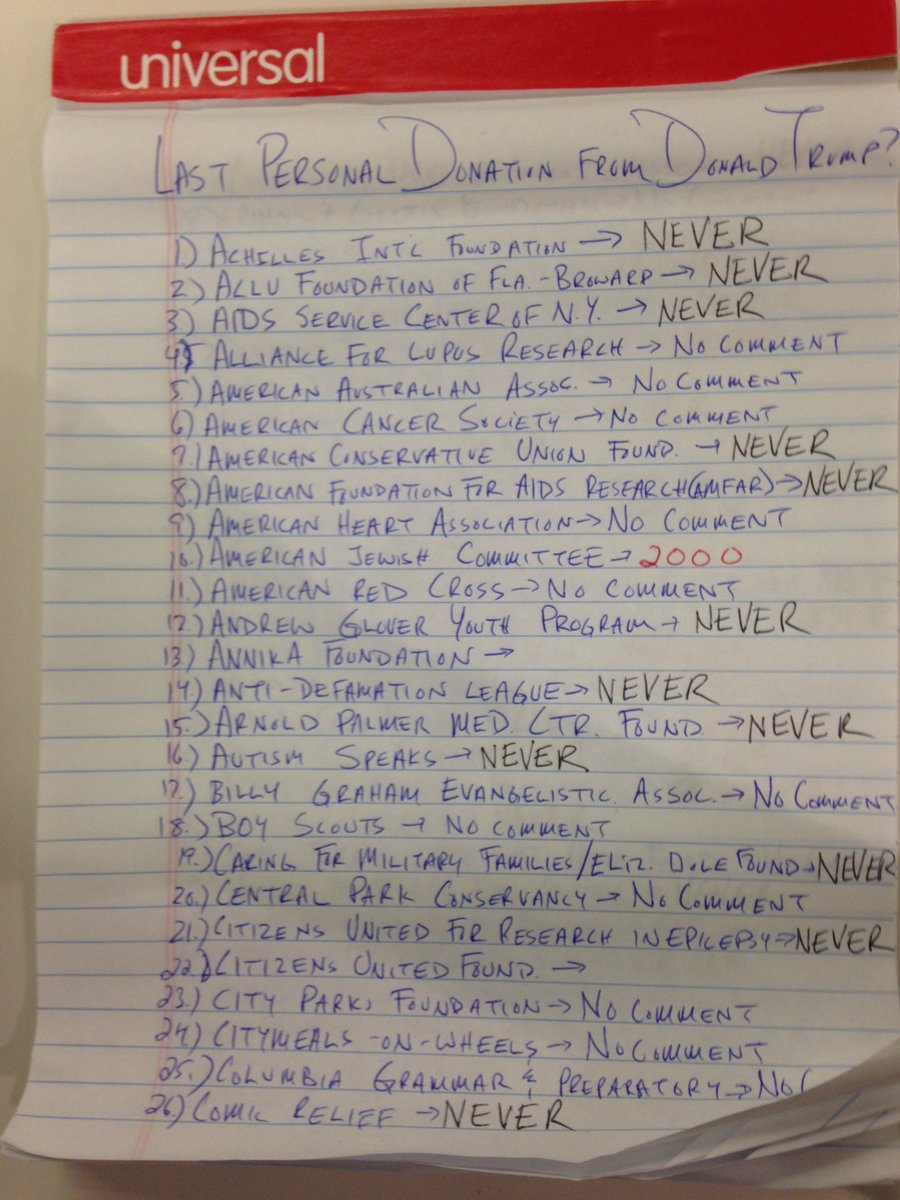 universal
LAST PERSONAL DONATION FROM DONALD TRUMP?
1) ACHILLES INT'L FOUNDATION → NEVER
2) ACLU FOUNDATION OF FLA. - BROWARD → NEVER
3) AIDS SERVICE CENTER OF N.Y. → NEVER
4) ALLIANCE FOR LUPUS RESEARCH → NO COMMENT
5.) AMERICAN AUSTRALIAN ASSOC. → NO COMMENT
6) AMERICAN CANCER SOCIETY → NO COMMENT
7.) AMERICAN CONSERVATIVE UNION FOUND. → NEVER
8.) AMERICAN FOUNDATION FOR AIDS RESEARCH (AMFAR) → NEVER
9.) AMERICAN HEART ASSOCIATION → NO COMMENT
10.) AMERICAN JEWISH COMMITTEE → 2000
11.) AMERICAN RED CROSS → NO COMMENT
12.) ANDREW GLOVER YOUTH PROGRAM → NEVER
13.) ANNIKA FOUNDATION →
14.) ANTI-DEFAMATION LEAGUE → NEVER
15.) ARNOLD PALMER MED. CTR. FOUND. → NEVER
16.) AUTISM SPEAKS → NEVER
17.) BILLY GRAHAM EVANGELISTIC ASSOC. → NO COMMENT
18.) BOY SCOUTS → NO COMMENT
19.) CARING FOR MILITARY FAMILIES/ELIZ. DOLE FOUND → NEVER
20.) CENTRAL PARK CONSERVANCY → NO COMMENT
21.) CITIZENS UNITED FOR RESEARCH IN EPILEPSY → NEVER
22.) CITIZENS UNITED FOUND. →
23.) CITY PARKS FOUNDATION → NO COMMENT
24.) CITYMEALS-ON-WHEELS → NO COMMENT
25.) COLUMBIA GRAMMAR & PREPARATORY → NO C
26.) COMIC RELIEF → NEVER